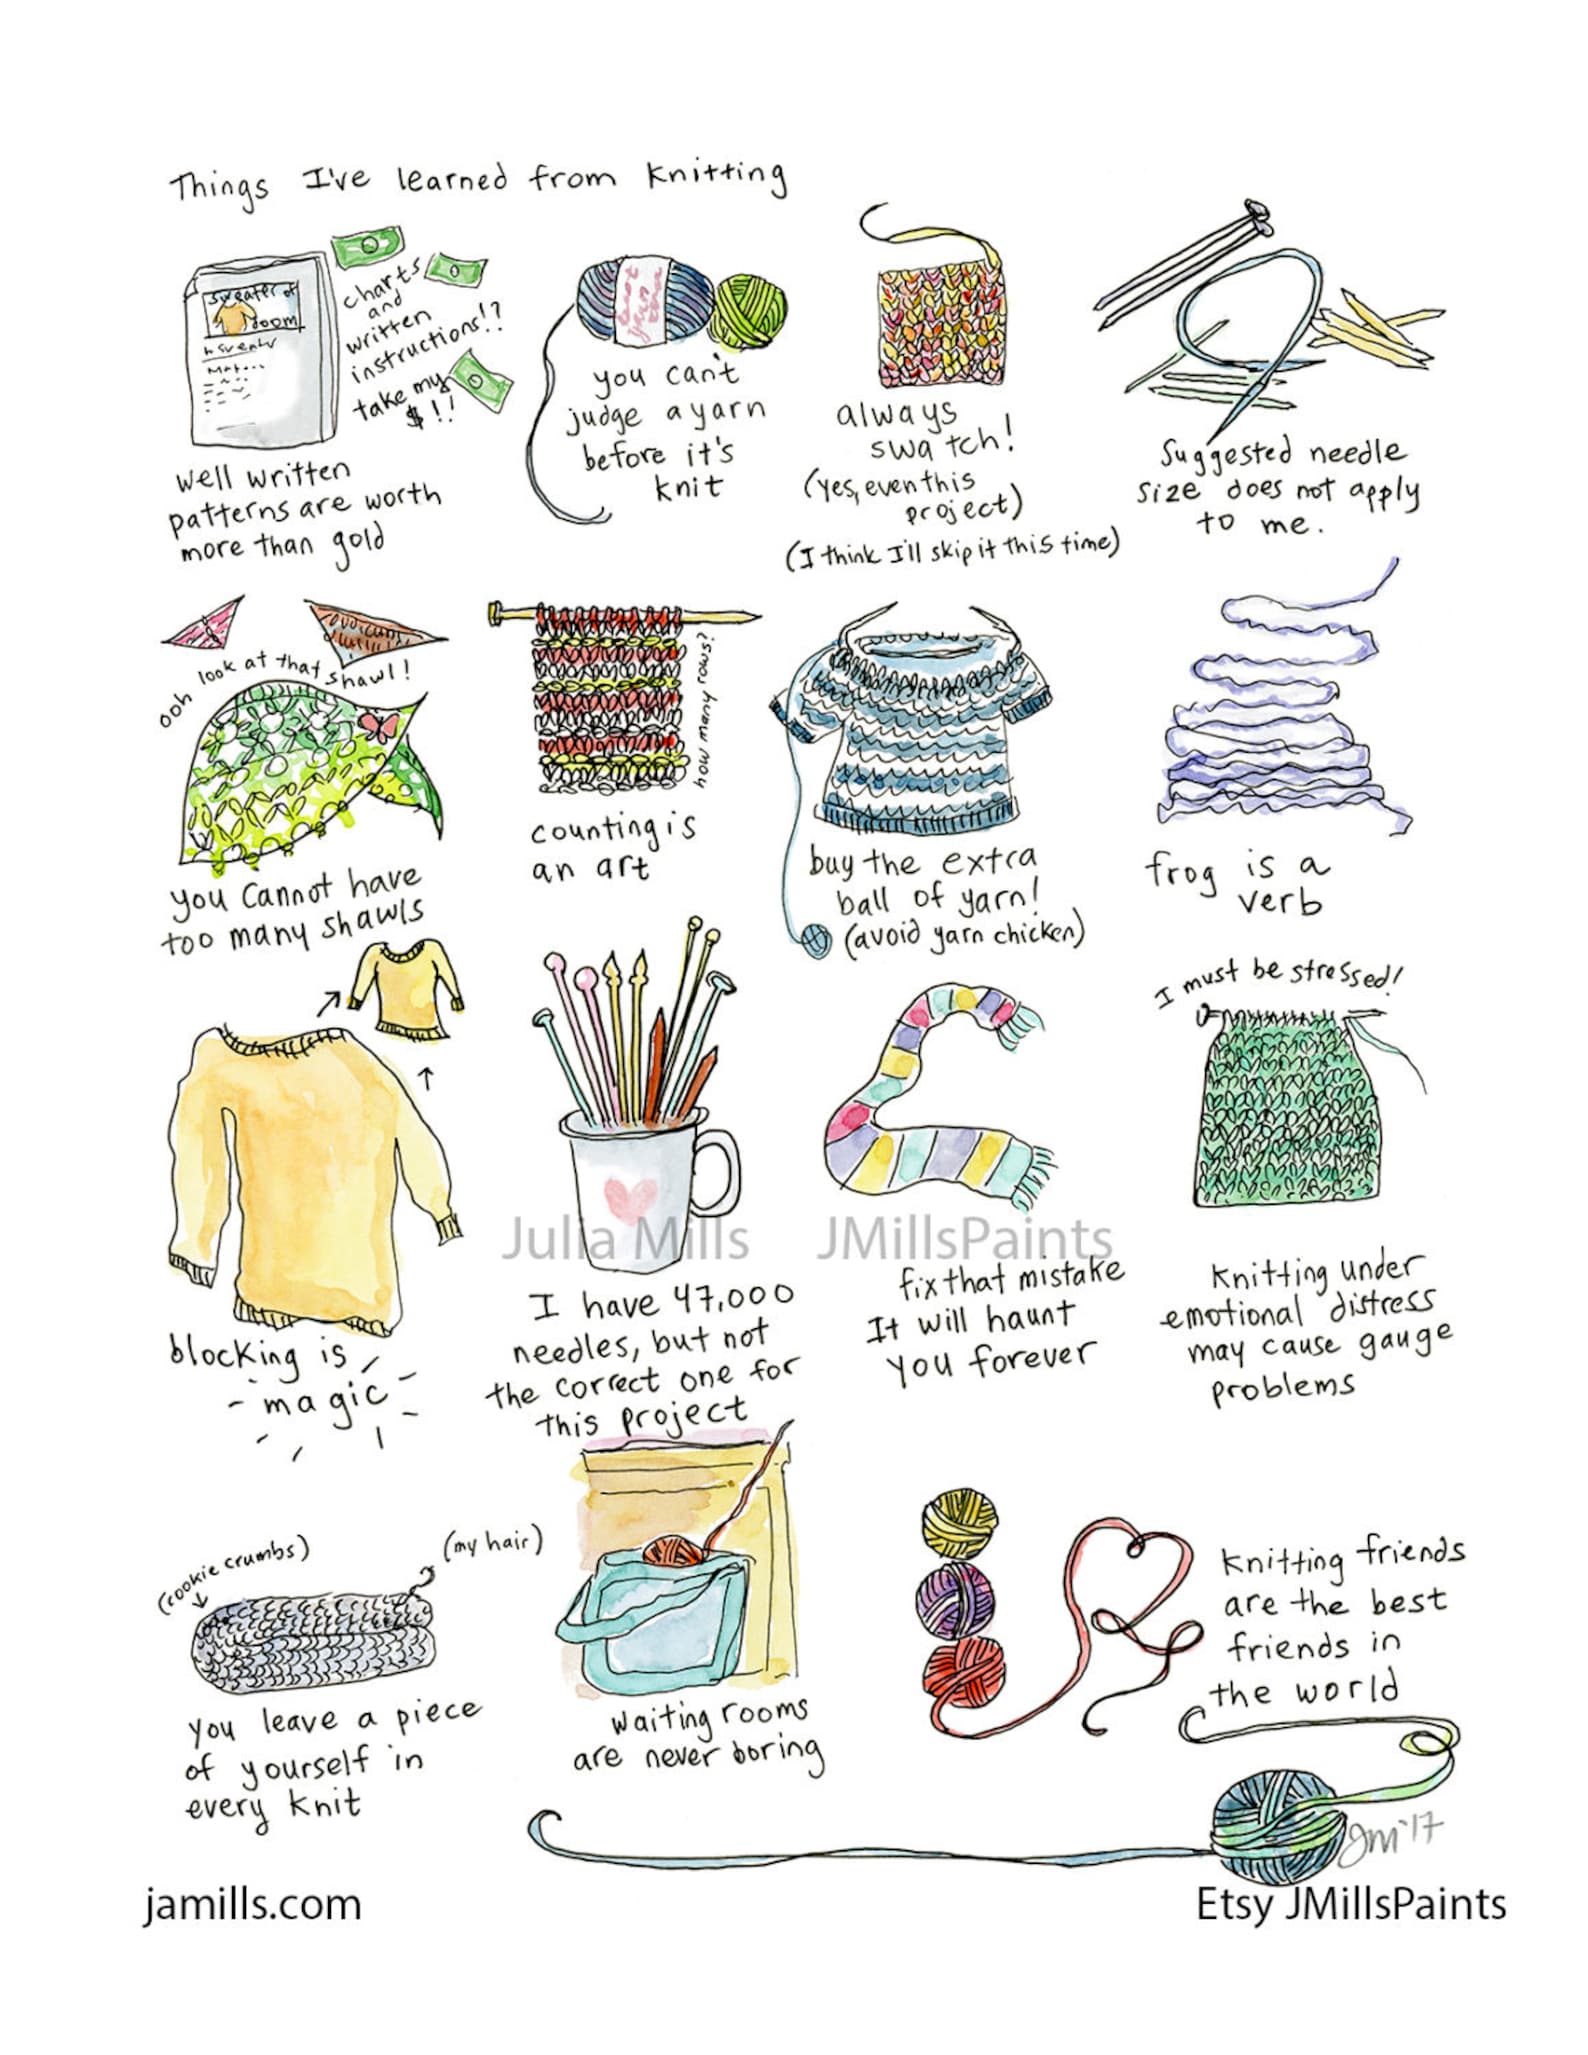 Things I've learned from Knitting
sweater of
doom
charts
and
written
instructions!?
take my
$!!
well written
patterns are worth
more than gold
you can't
judge a yarn
before it's
knit
always
swatch!
(yes, even this
project)
(I think I'll skip it this time)
Suggested needle
size does not apply
to me.
ooh look at that shawl!
you cannot have
too many shawls
how many rows?
counting is
an art
buy the extra
ball of yarn!
(avoid yarn chicken)
frog is a
verb
blocking is
magic
I have 47,000
needles, but not
the correct one for
this project
Julia Mills JMillsPaints
fix that mistake
It will haunt
you forever
I must be stressed!
Knitting under
emotional distress
may cause gauge
problems
(cookie crumbs)
(my hair)
you leave a piece
of yourself in
every knit
waiting rooms
are never boring
Knitting friends
are the best
friends in
the world
JM '17
jamills.com
Etsy JMillsPaints